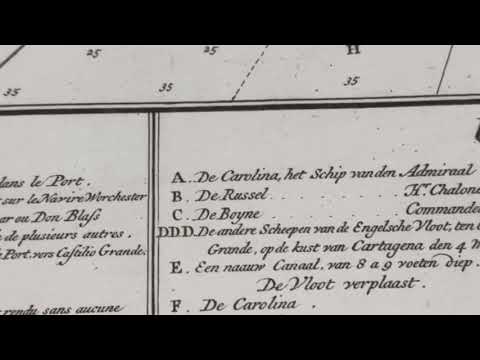 25
25
H
35
35
35
dans le Port.
sur le Navire Worchester
ar ou Don Blass
de plusieurs autres.
le Port, vers Castilio Grande.
rendu sans aucune
A. De Carolina, het Schip van den Admiraal
B. De Russel. Hr. Chalone
C. De Boyne Commande
DDD. De andere Scheepen van de Engelsche Vloot, ten
Grande, op de kust van Cartagena den 4 M
E. Een naauw Canaal, van 8 a 9 voeten diep.
De Vloot verplaast.
F. De Carolina.